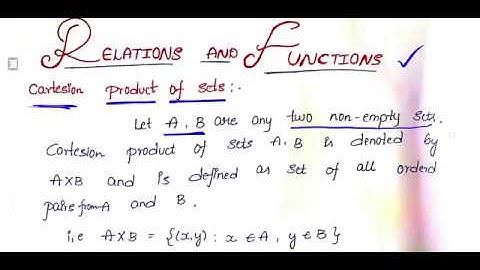 RELATIONS AND FUNCTIONS ✓
Cartesion product of sets:-
Let A, B are any two non-empty sets.
Cartesion product of sets A, B is denoted by
A×B and is defined as set of all orderd
pairs from A and B.
i,e A×B = {(x,y) : x ∈ A, y ∈ B}